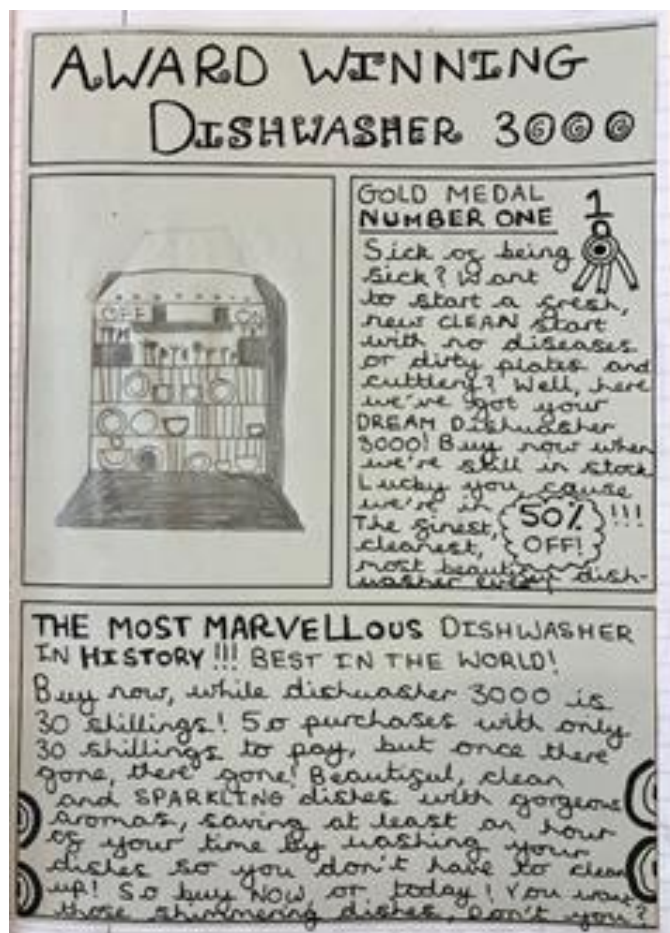 AWARD WINNING
DISHWASHER 3000
OFF ON
GOLD MEDAL
NUMBER ONE
1
Sick of being
sick? Want
to start a fresh,
new CLEAN start
with no diseases
or dirty plates and
cuttlery? Well, here
we've got your
DREAM Dishwasher
3000! Buy now when
we're still in stock
Lucky you, cause
we're in
50% OFF! !!!
The finest,
cleanest,
most beautiful dish-
washer ever!
THE MOST MARVELLOUS DISHWASHER
IN HISTORY!!! BEST IN THE WORLD!
Buy now, while dishwasher 3000 is
30 shillings! 50 purchases with only
30 shillings to pay, but once there
gone, there gone! Beautiful, clean
and SPARKLING dishes with gorgeous
aromas, saving at least an hour
of your time by washing your
dishes so you don't have to clean
up! So buy NOW or today! You want
those shimmering dishes, Don't you?